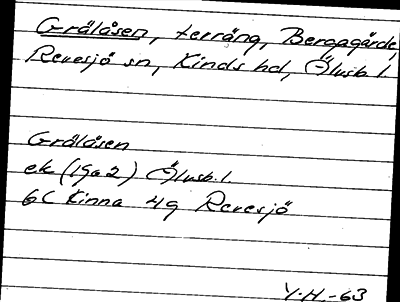 Grålåsen, terräng, Bergagärde,
Revesjö sn, Kinds hd, Älvsb. l.
Grålåsen
ek (19a2) Älvsb. l.
6C Kinna 4g Revesjö
Y.H.-63